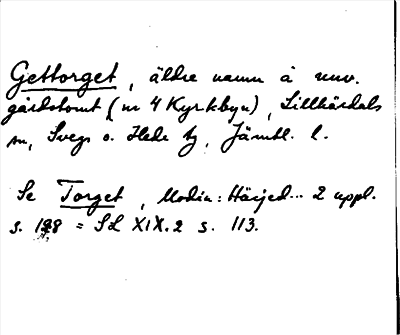 Gettorget, äldre namn å nuv.
gårdstomt (nr 4 Kyrkbyn), Lillhärdals
sn, Svegs o. Hede tg, Jämtl. l.
Se Torget, Modin: Härjed... 2 uppl.
s. 198 = SL XIX.2 s. 113.